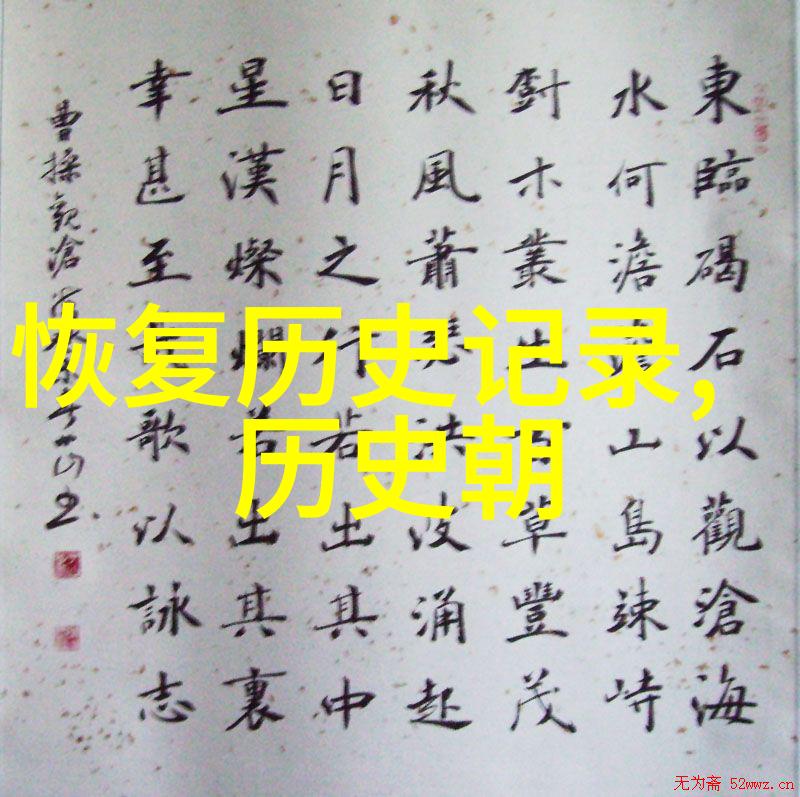 東臨碣石以觀滄海
水何澹澹山島竦峙
樹木叢生百草豐茂
秋風蕭瑟洪波涌起
日月之行若出其中
星漢燦爛若出其裏
幸甚至哉歌以詠志
曹操觀滄
恢复历史记录,
历史朝
无为斋 52wwz.cn